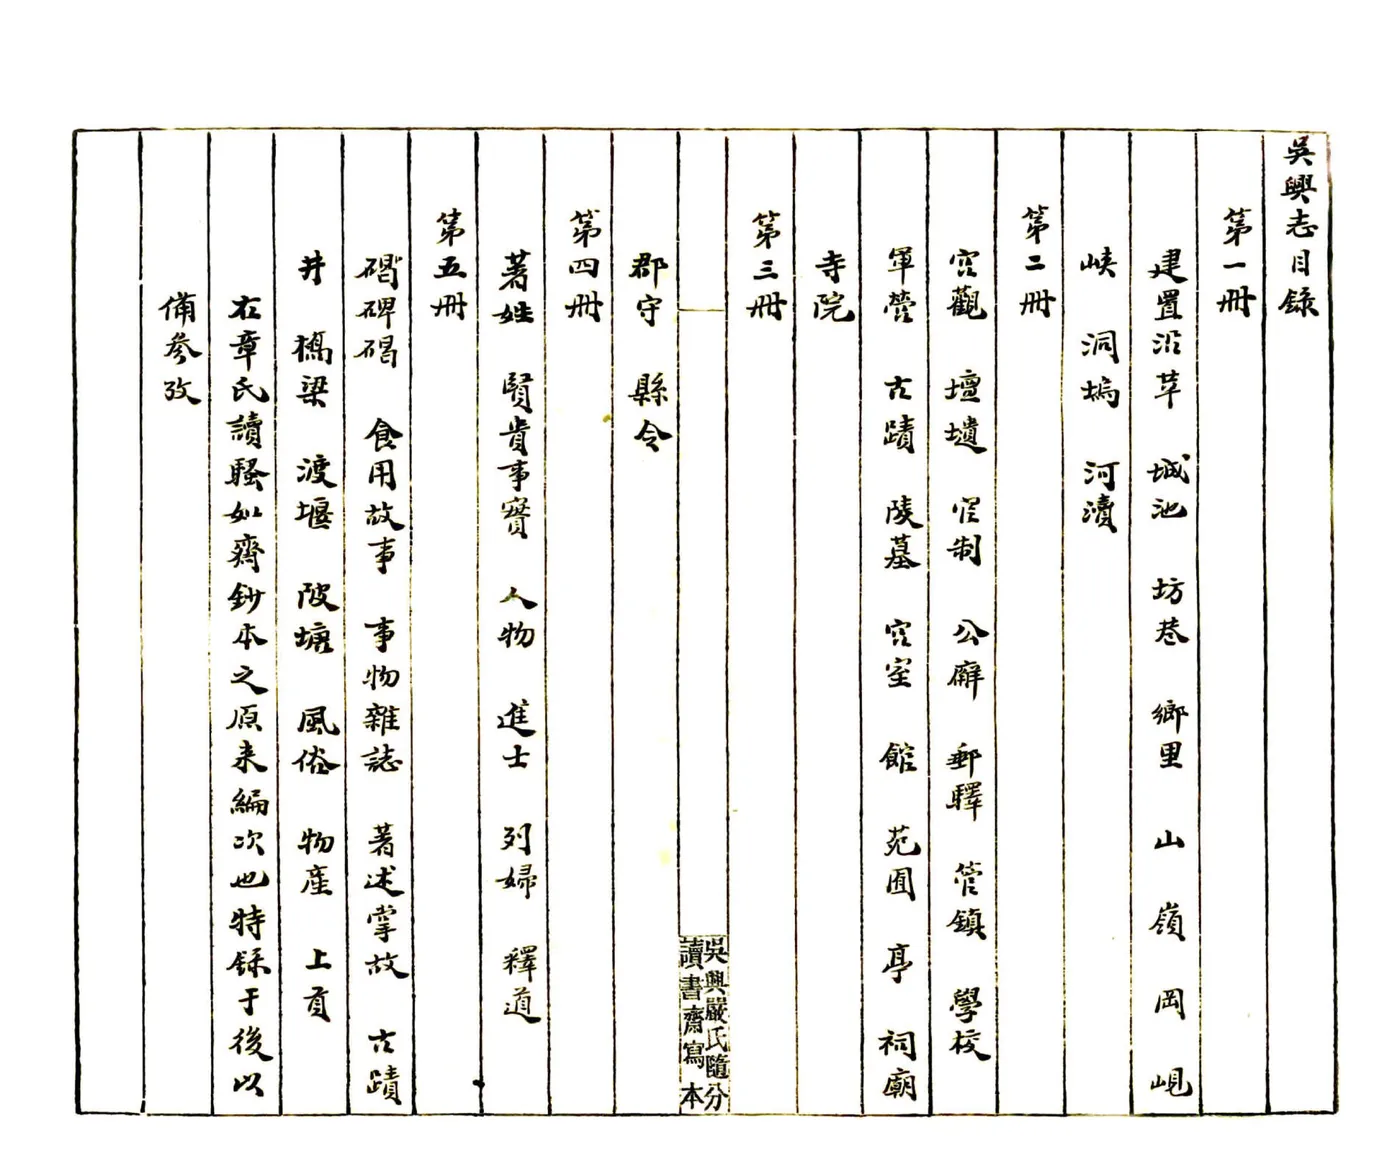 吳興志目錄
第一冊
建置沿革　城池　坊巷　鄉里　山　嶺　岡　峴
峽　洞塢　河瀆
第二冊
宮觀　壇壝　官制　公廨　郵驛　管鎮　學校
軍營　古蹟　陵墓　宮室　館　苑囿　亭　祠廟
寺院
第三冊
吳興嚴氏隨分
讀書齋寫本
郡守　縣令
第四冊
著姓　賢貴事實　人物　進士　列婦　釋道
第五冊
碣碑碣　食用故事　事物雜誌　著述掌故　古蹟
井　橋梁　渡堰　陂塘　風俗　物產　上貢
右章氏讀騷如齋鈔本之原来編次也特録于後以
備參攷